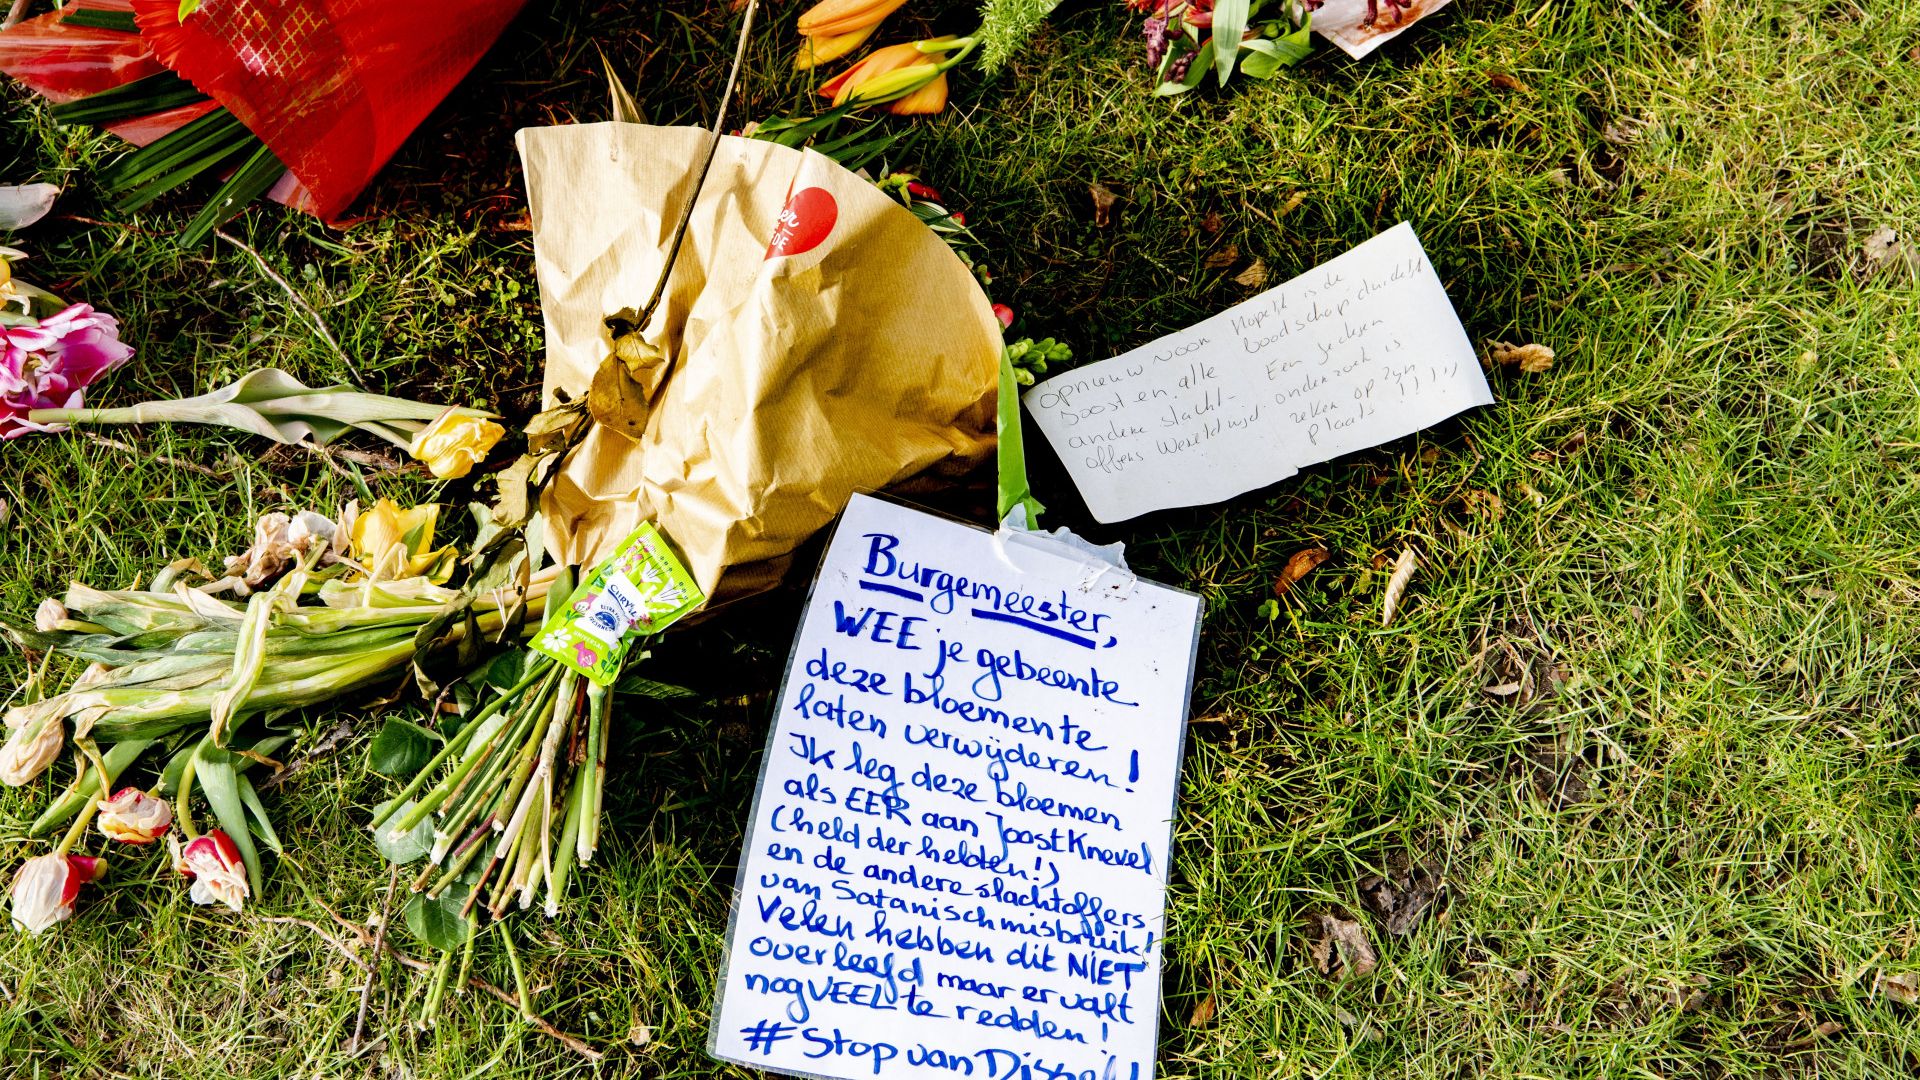 er
EDE
opnieuw voor
Joost en alle
andere slacht-
offers wereldwijd.
Hopelijk is de
boodschap duidelijk
Een gedegen
onderzoek is
zeker op zijn
plaats !!!!!
Chrysal
UNIVERSAL
Burgemeester,
WEE je gebeente
deze bloemen te
laten verwijderen!
Ik leg deze bloemen
als EER aan Joost Knevel
(held der helden!)
en de andere slachtoffers
van Satanisch misbruik!
Velen hebben dit NIET
overleefd maar er valt
nog VEEL te redden!
#Stop van Dissel!